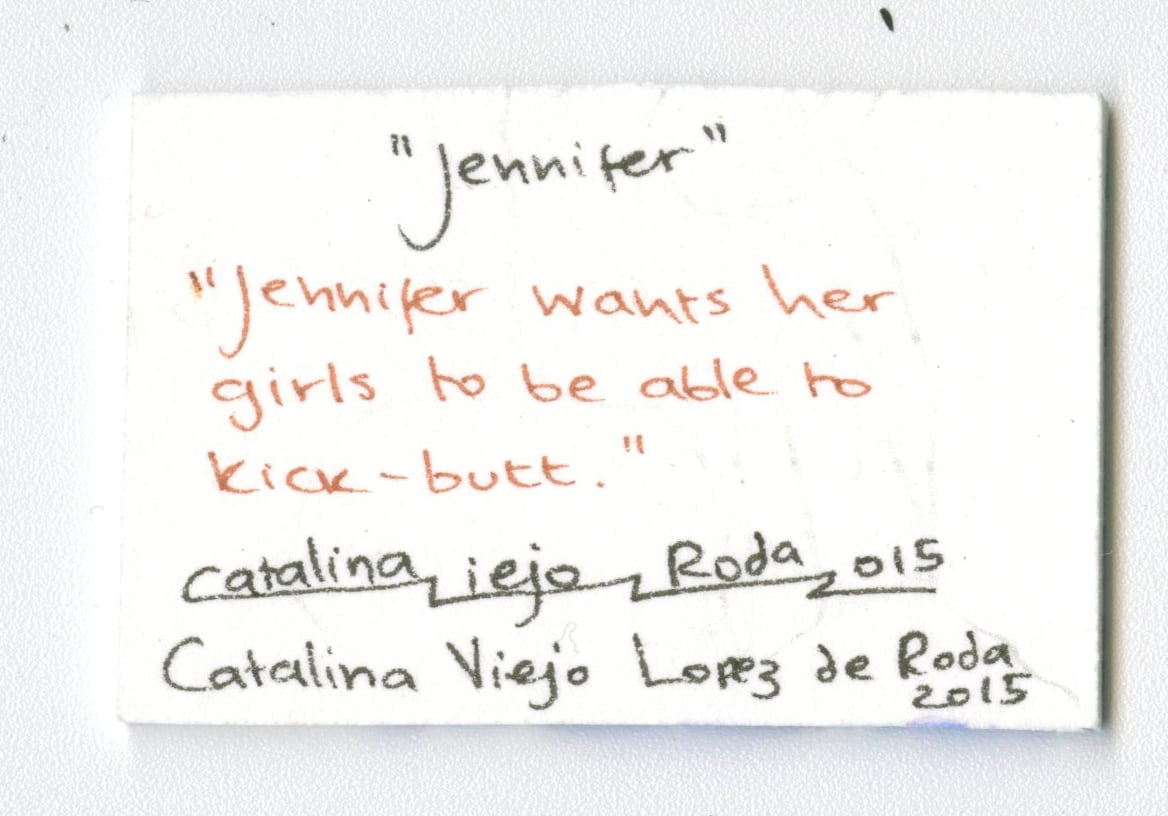 "Jennifer"
"Jennifer wants her
girls to be able to
kick-butt."
Catalina Viejo Roda 2015
Catalina Viejo Lopez de Roda
2015